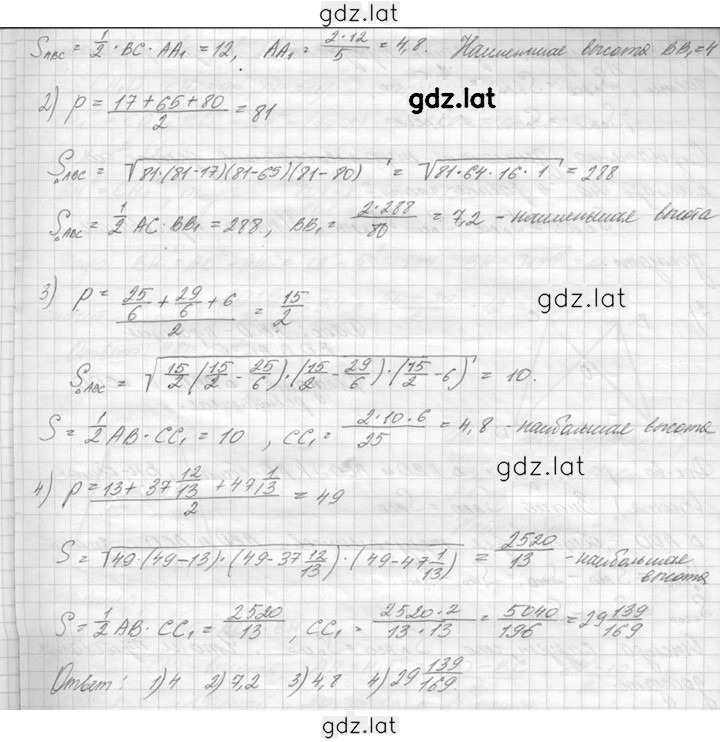 gdz.lat
S_АВС = 1/2 · BC · AA₁ = 12, AA₁ = 2·12/5 = 4,8. Наименьшая высота BB₁ = 4
gdz.lat
2) p = (17+65+80)/2 = 81
S_△АВС = √(81·(81-17)(81-65)(81-80)) = √(81·64·16·1) = 288
S_△АВС = 1/2 AC · BB₁ = 288, BB₁ = 2·288/80 = 7,2 - наименьшая высота
3) p = (25/6 + 29/6 + 6)/2 = 15/2
gdz.lat
S_△АВС = √(15/2 (15/2 - 25/6) · (15/2 - 29/6) · (15/2 - 6)) = 10.
S = 1/2 AB · CC₁ = 10, CC₁ = 2·10·6/25 = 4,8 - наибольшая высота
gdz.lat
4) p = (13 + 37 12/13 + 47 1/13)/2 = 49
S = √(49·(49-13)·(49-37 12/13)·(49-47 1/13)) = 2520/13 - наибольшая
высота
S = 1/2 AB · CC₁ = 2520/13, CC₁ = 2520·2/13·13 = 5040/196 = 29 139/169
Ответ: 1) 4 2) 7,2 3) 4,8 4) 29 139/169
gdz.lat